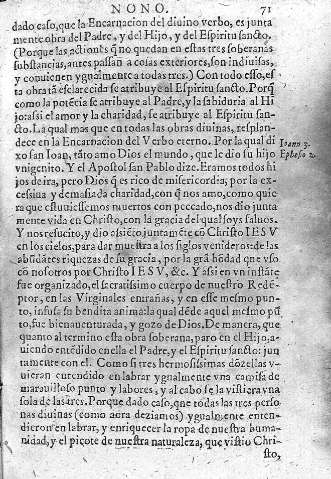 NONO. 71
dado caso, que la Encarnacion del diuino verbo, es junta
mente obra del Padre, y del Hijo, y del Espiritu sancto.
(Porque las actiones q̃ no quedan en estas tres soberanas
substancias, antes passan a cosas exteriores, son indiuisas,
y conuienen ygualmente a todas tres.) Con todo esso, es
ta obra tã esclarecida se atribuye al Espiritu sancto. Porq̃
como la potẽcia se atribuye al Padre, y la sabiduria al Hi
jo: assi el amor y la charidad, se atribuye al Espiritu san-
cto. La qual mas que en todas las obras diuinas, resplan-
dece en la Encarnacion del Verbo eterno. Por la qual di
xo san Ioan, tãto amo Dios el mundo, que le dio su hijo
Ioann 3.
vnigenito. Y el Apostol san Pablo dize. Eramos todos hi
Ephes. 2.
jos de ira, pero Dios q̃ es rico de misericordia, por la ex-
cessiua y demasiada charidad, con q̃ nos amo, como quie
ra que estuuiessemos muertos con peccado, nos dio junta
mente vida en Christo, con la gracia del qual soys saluos.
Y nos resucito, y dio assiẽto juntamẽte cõ Christo IESV
en los cielos, para dar muestra a los siglos venideros: de las
abũdãtes riquezas de su gracia, por la grã bõdad que vso
cõ nosotros por Christo IESV, &c. Y assi en vn instãte
fue organizado, el sacratissimo cuerpo de nuestro Redẽ-
ptor, en las Virginales entrañas, y en esse mismo pun-
to, infusa su bendita anima: la qual dẽde aquel mesmo pũ
to, fue bienauenturada, y gozo de Dios. De manera, que
quanto al termino esta obra soberana, paro en el Hijo, a-
uiendo entẽdido en ella el Padre, y el Espiritu sancto: jun
tamente con el. Como si tres hermosissimas dõzellas vu-
uieran entendido en labrar ygualmente vna camisa de
marauilloso punto y labores, y al cabo se la vistiera vna
sola de las tres. Porque dado caso, que todas las tres perso
nas diuinas (como aora deziamos) ygualmente enten-
dieron en labrar, y enriquecer la ropa de nuestra huma-
nidad, y el picote de nuestra naturaleza, que vistio Chri-
sto,